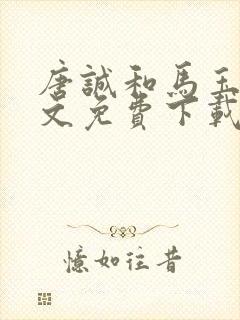 唐誠和馬玉
文免費下載
憶如往昔